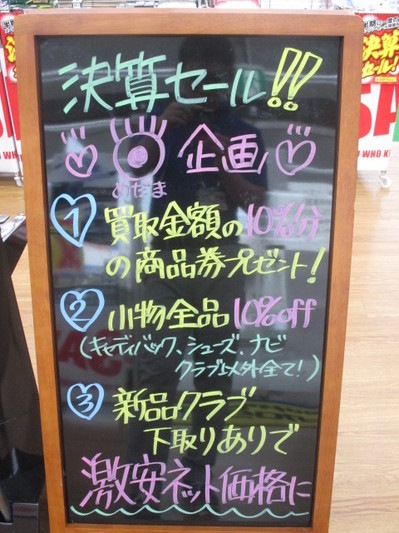 決算セール!!
企画
めだま
1 買取金額の10%分
の商品券プレゼント!
2 小物全品10%off
(キャディバック、シューズ、ナビ
クラブ以外全て!)
3 新品クラブ
下取りありで
激安ネット価格に
決算
セール!
SA
WHO K